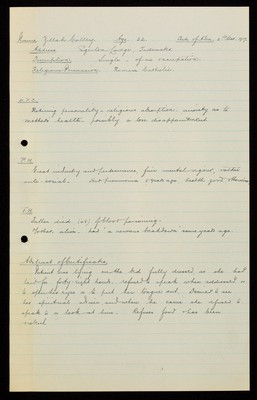 Name Zillah Gallery. Age. 22 Date of Adm. 6th Dec. 1917.
Address Lodge,
Occupation Single, of no occupation
Religious Persuasion Roman Catholic.
H.P.I.
Retiring personality - religious absorption, anxiety as to
mother's health possibly a love disappointment
P.H.
Great industry and perseverance, fair mental vigour, rather
social. Had pneumonia years ago, health good otherwise
F.H.
Father died (42) of blood poisoning.
Mother alive. had a nervous breakdown some years ago.
Abstract of Certificates.
Patient was lying on the bed fully dressed, as she had
been for forty-eight hours. refused to speak when addressed or
to open her eyes or to put her tongue out. Desired to see
her spiritual adviser and when he came she refused to
speak to or look at him. Refuses food & has been
violent.